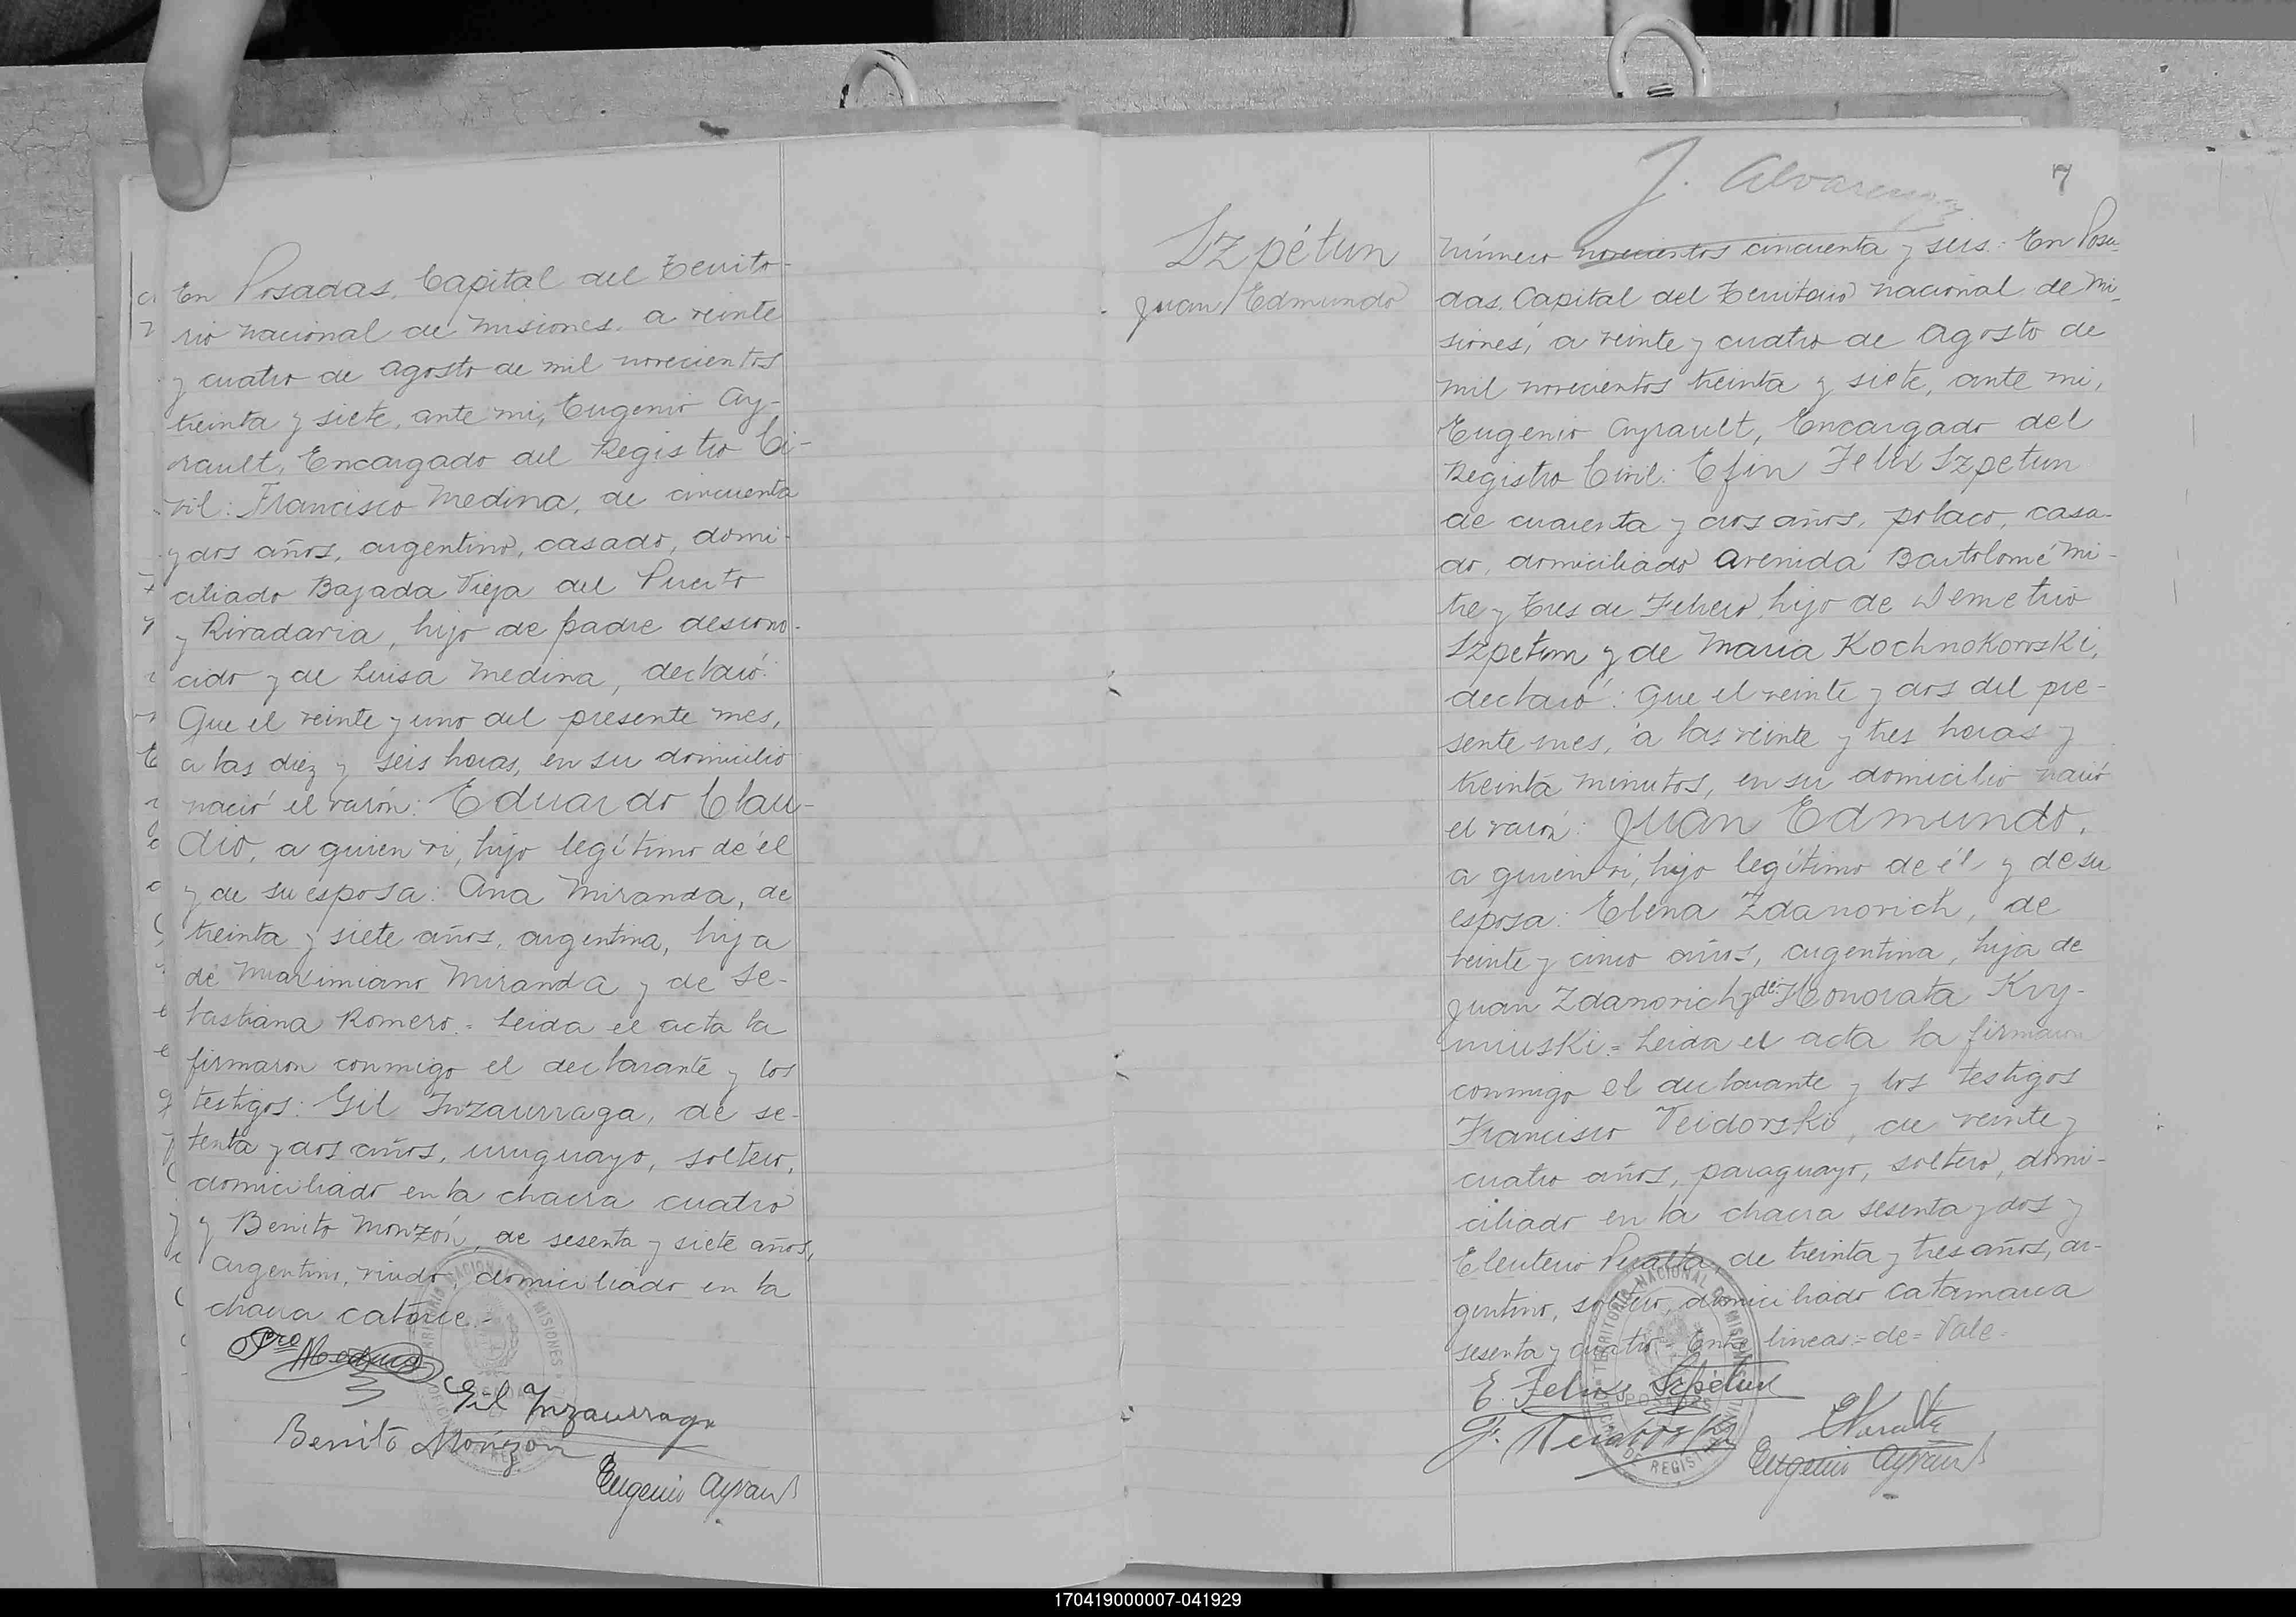 En Posadas, Capital del Territo-
rio nacional de Misiones, a veinte
y cuatro de agosto de mil novecientos
treinta y siete, ante mi, Eugenio Ay-
rault, Encargado del Registro Ci-
vil: Francisco Medina, de cincuenta
y dos años, argentino, casado, domi-
ciliado Bajada Vieja del Puerto
y Rivadavia, hijo de padre descono-
cido y de Luisa Medina, declaró:
Que el veinte y uno del presente mes,
a las diez y seis horas, en su domicilio
nació el varón: Eduardo Clau-
dio, a quien vi, hijo legítimo de él
y de su esposa: Ana Miranda, de
treinta y siete años, argentina, hija
de Maximiano Miranda y de Se-
bastiana Romero.= Leida el acta la
firmaron conmigo el declarante y los
testigos: Gil Inzaurraga, de se-
tenta y dos años, uruguayo, soltero,
domiciliado en la chacra cuatro
y Benito Monzón, de sesenta y siete años,
argentino, viudo, domiciliado en la
chacra catorce.=
Fco Medina
Gil Inzaurraga
Benito Monzon
Eugenio Ayrault
J. Alvarenga
7
Szpétun
Juan Edmundo
Número novecientos cincuenta y seis.= En Posa-
das, Capital del Territorio nacional de Mi-
siones, a veinte y cuatro de agosto de
mil novecientos treinta y siete, ante mi,
Eugenio Ayrault, Encargado del
Registro Civil: Efin Felix Szpetun
de cuarenta y dos años, polaco, casa-
do, domiciliado Avenida Bartolomé Mi-
tre y Tres de Febrero, hijo de Demetrio
Szpetun y de Maria Kochnokowski,
declaró: Que el veinte y dos del pre-
sente mes, a las veinte y tres horas y
treinta minutos, en su domicilio nació
el varón: Juan Edmundo,
a quien vi, hijo legítimo de él y de su
esposa: Elena Zdanovich, de
veinte y cinco años, argentina, hija de
Juan Zdanovich y de Honorata Kry-
miuski.= Leida el acta la firmaron
conmigo el declarante y los testigos
Francisco Veidorski, de veinte y
cuatro años, paraguayo, soltero, domi-
ciliado en la chacra sesenta y dos y
Eleuterio Peralta, de treinta y tres años, ar-
gentino, soltero, domiciliado Catamarca
sesenta y cuatro.= Entre lineas.=de=Vale=
E. Felixs Szpétun
EPeralta
Eugenio Ayrault
TERRITORIO NACIONAL DE MISIONES
POSADAS
170419000007-041929